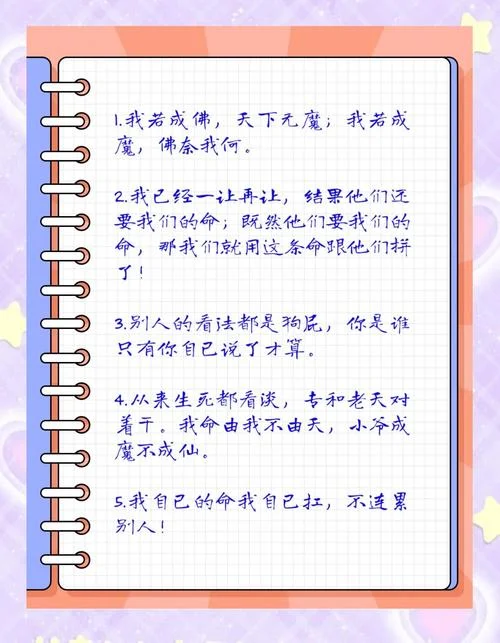 1.我若成佛，天下无魔；我若成
魔，佛奈我何。
2.我已经一让再让，结果他们还
要我们的命；既然他们要我们的
命，那我们就用这条命跟他们拼
了！
3.别人的看法都是狗屁，你是谁
只有你自己说了才算。
4.从来生死都看淡，专和老天对
着干。我命由我不由天，小爷成
魔不成仙。
5.我自己的命我自己扛，不连累
别人！